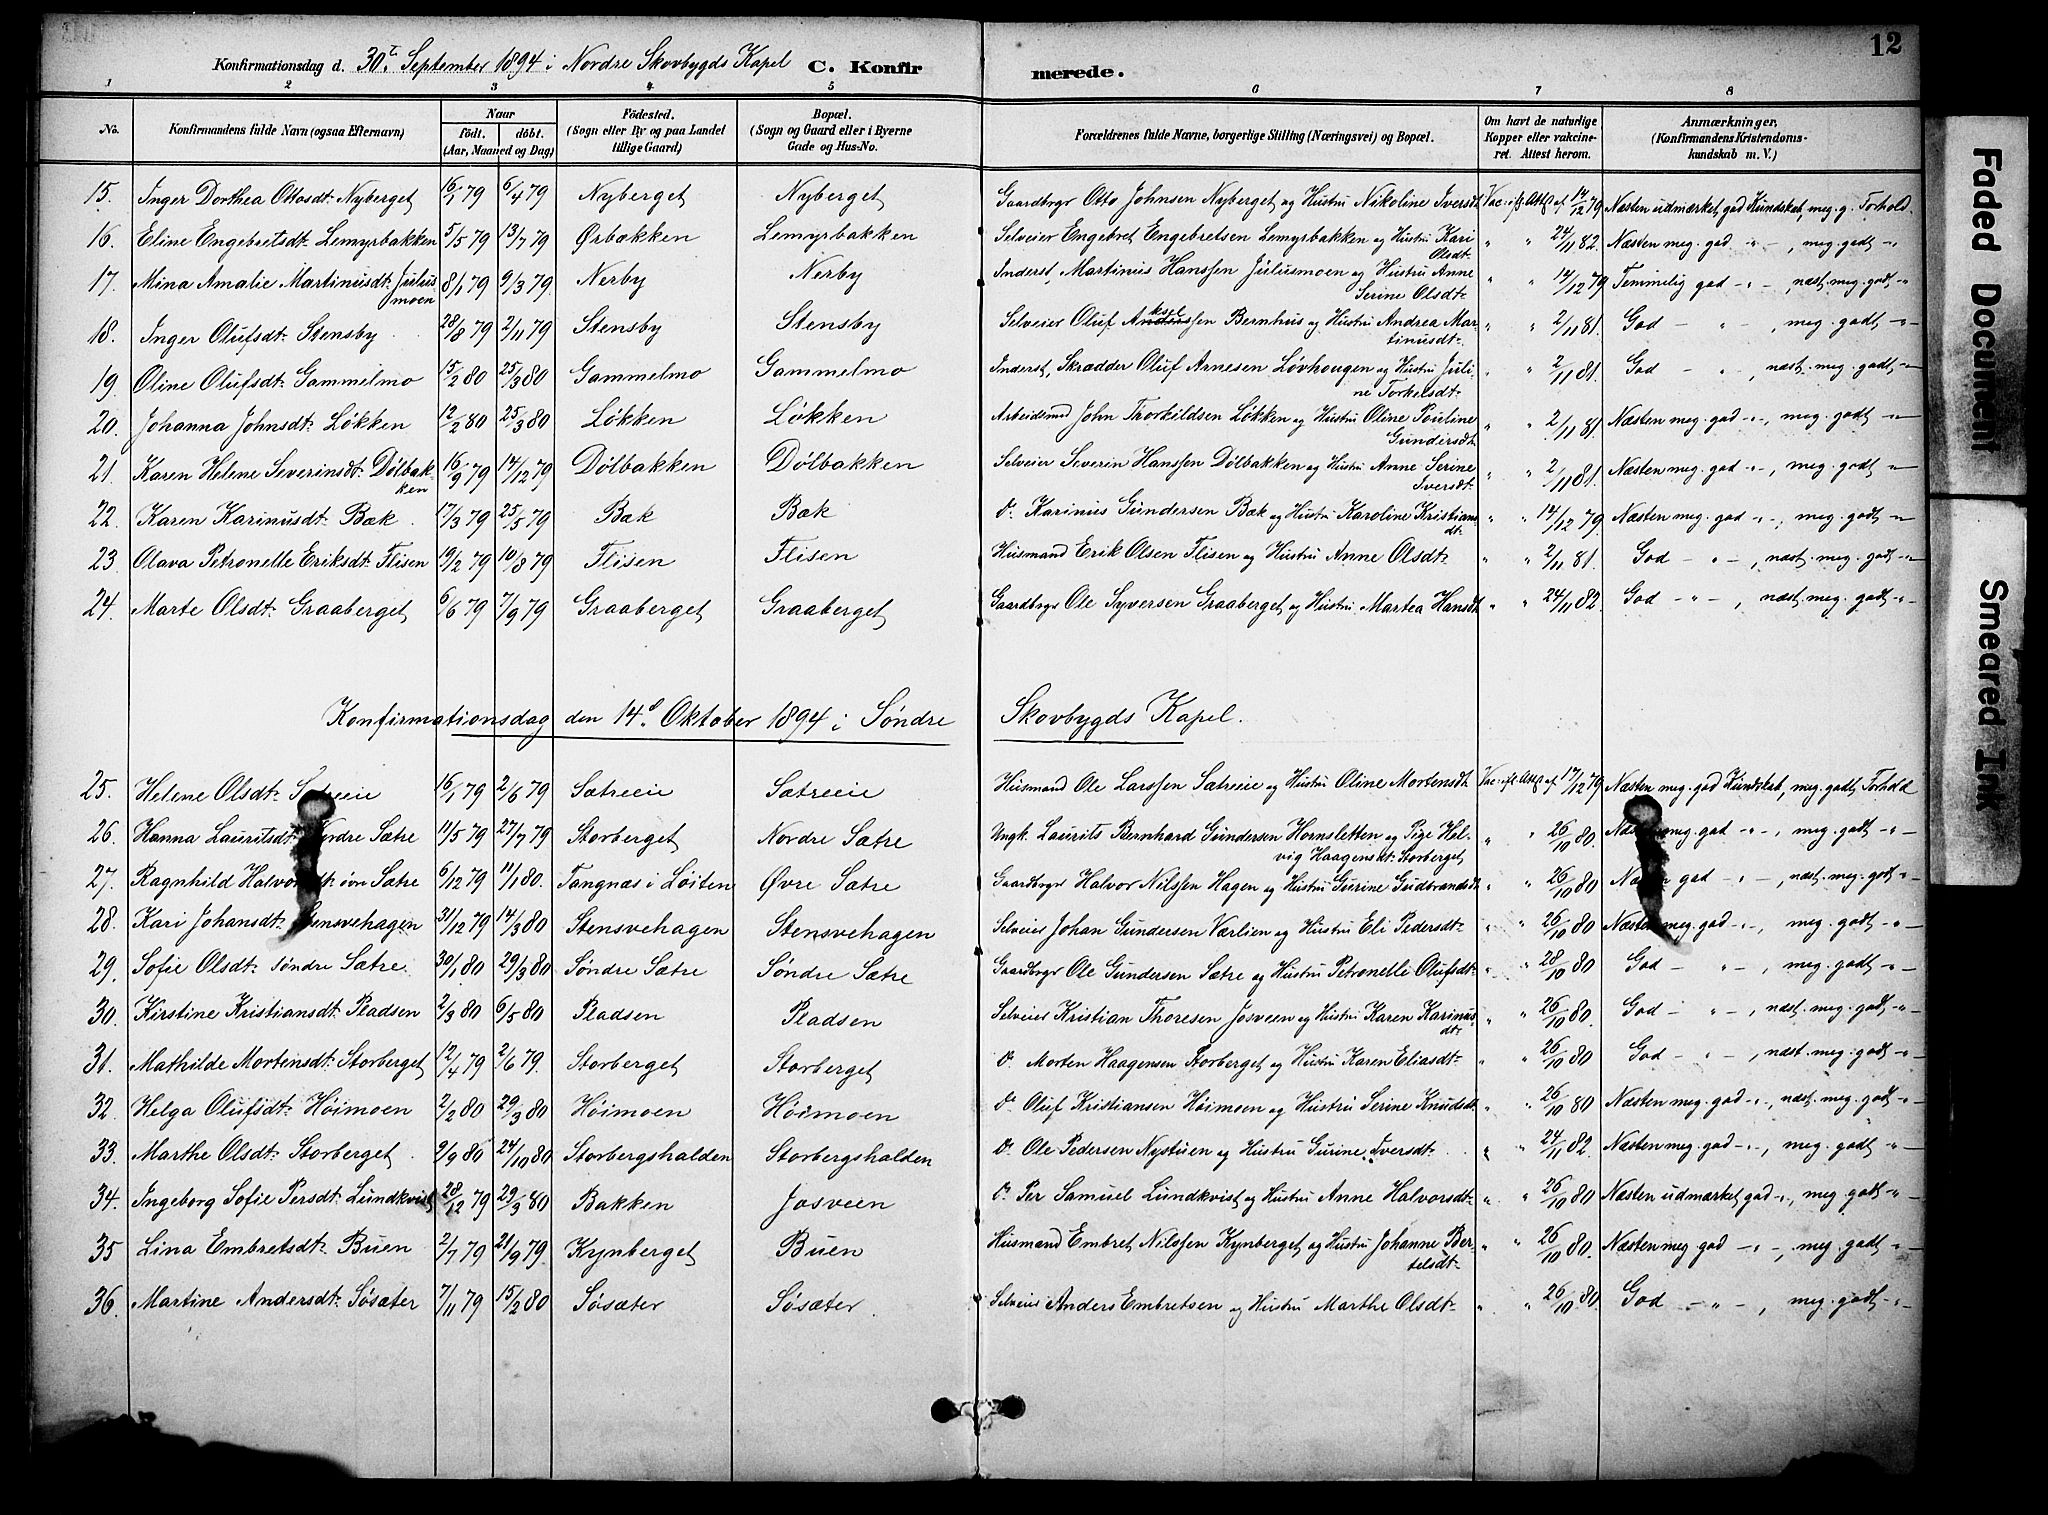 12
Konfirmationsdag d. 30te September 1894 i Nordre Skovbygds Kapel C. Konfirmerede.
1 2 3 4 5 6 7 8
No. Konfirmandens fulde Navn (ogsaa Efternavn) Naar født. døbt. (Aar, Maaned og Dag) Fødested. (Sogn eller By og paa Landet tillige Gaard) Bopæl. (Sogn og Gaard eller i Byerne Gade og Hus-No. Forældrenes fulde Navne, borgerlige Stilling (Næringsvei) og Bopæl. Om havt de naturlige Kopper eller vakcineret. Attest herom. Anmærkninger, (Konfirmandens Kristendomskundskab m. V.)
15. Inger Dorthea Ottosdt. Nyberget 16/1 79 6/4 79 Nyberget Nyberget Gaardbrgr Otto Johnsen Nyberget og Hustru Nikoline Iversdt. Vac. ifl. Att. af 14/12 79 Næsten udmærket god Kundskab, meg. g. Forhold.
16. Eline Engebretsdt. Lemyrbakken 5/5 79 13/7 79 Ørbækken Lemyrbakken Selveier Engebret Engebretsen Lemyrbakken og Hustru Kari Olsdt. " " 24/11 82. Næsten meg. god -"-, meg. godt -"-
17. Mina Amalie Martinusdt. Juliusmoen 8/1 79 9/3 79. Nerby Nerby Inderst, Martinus Hanssen Juliusmoen og Hustru Anne Serine Olsdt. " " 14/12 79 Temmelig god -"-, næst. meg. godt -"-
18. Inger Olufsdt. Stensby 28/8 79 2/11 79 Stensby Stensby Selveier Oluf Bernhus og Hustru Andrea Martinusdt. " " 2/11 81. God -"-, meg. godt -"-
19. Oline Olufsdt. Gammelmo 15/2 80 25/3 80 Gammelmo Gammelmo Inderst, Skrædder Oluf Arnesen Løvhougen og Hustru Juline Torkelsdt. " " 2/11 81. God -"-, næst. meg. godt -"-
20. Johanna Johnsdt. Løkken 12/2 80 25/3 80 Løkken Løkken Arbeidsmd John Thorkildsen Løkken og Hustru Oline Pouline Gundersdt. " " 2/11 81. Næsten meg. god -"-, meg. godt -"-
21. Karen Helene Severinsdt. Dølbakken 16/9 79 14/12 79 Dølbakken Dølbakken Selveier Severin Hanssen Dølbakken og Hustru Anne Serine Iversdt. " " 2/11 81. Næsten meg. god -"-, meg. godt -"-
22. Karen Karinusdt. Bæk. 17/3 79 25/5 79 Bæk Bæk do. Karinus Gundersen Bæk og Hustru Karoline Kristiansdt. " " 14/12 79. Næsten meg. god -"-, meg. godt -"-
23. Olava Petronelle Eriksdt. Flisen 19/2 79 10/8 79 Flisen Flisen Husmand Erik Olsen Flisen og Hustru Anne Olsdt. " " 2/11 81. God -"-, næst. meg. godt -"-
24. Marte Olsdt. Graaberget 6/6 79 7/9 79 Graaberget Graaberget Gaardbrgr Ole Syversen Graaberget og Hustru Martea Hansdt. " " 24/11 82. God -"-, næst. meg. godt -"-
Konfirmationsdag den 14de Oktober 1894 i Søndre Skovbygds Kapel.
25. Helene Olsdt. Sætreeie 16/1 79 2/6 79 Sætreeie Sætreeie Husmand Ole Larssen Sætreeie og Hustru Oline Mortensdt. Vac. ifl. Att. af 17/12 79 Næsten meg. god Kundskab, meg. godt Forhold
26. Hanna Lauritsdt. Nordre Sætre 11/5 79 27/7 79 Storberget Nordre Sætre Ungk. Laurits Bernhard Gundersen Hornsletten og Pige Helvig Haagensdt. Storberget " " 26/10 80. Næsten meg. god -"-, meg. godt -"-
27. Ragnhild Halvorsdt. øvre Sætre 6/12 79 11/1 80. Tangnæs i Løiten Øvre Sætre Gaardbrgr Halvor Nilssen Hagen og Hustru Gurine Gudbrandsdt. " " 26/10 80 god -"-, næst. meg. godt -"-
28. Kari Johansdt. Stensvehagen 31/12 79 14/3 80 Stensvehagen Stensvehagen Selveier Johan Gundersen Værlien og Hustru Eli Pedersdt. " " 26/10 80 Næsten meg. god -"-, meg. godt -"-
29. Sofie Olsdt. Søndre Sætre. 30/1 80 29/3 80 Søndre Sætre Søndre Sætre Gaardbrgr Ole Gundersen Sætre og Hustru Petronelle Olufsdt. " " 28/10 80 God -"-, meg. godt -"-
30. Kirstine Kristiansdt. Pladsen 2/3 80 6/5 80 Pladsen Pladsen Selveier Kristian Thoresen Josveen og Hustru Karen Karinusdt. " " 26/10 80. God -"-, næst. meg. godt -"-
31. Mathilde Mortensdt. Storberget 12/4 79 2/6 79. Storberget Storberget do. Morten Haagensen Storberget og Hustru Karen Eliasdt. " " 26/10 80 God -"-, næst. meg. godt -"-
32. Helga Olufsdt. Høimoen 2/2 80 29/3 80 Høimoen Høimoen do. Oluf Kristiansen Høimoen og Hustru Serine Knudsdt. " " 26/10 80 Næsten meg. god -"-, næst. meg. godt -"-
33. Marthe Olsdt. Storberget. 2/9 80 24/10 80 Storbergshalden Storbergshalden do. Ole Pedersen Nystuen og Hustru Gurine Iversdt. " " 24/11 82. Næsten meg. god -"-, meg. godt -"-
34. Ingeborg Sofie Persdt. Lundkvist 28/12 79 29/3 80 Bakken Josveen do. Per Samuel Lundkvist og Hustru Anne Halvorsdt. " " 26/10 80 Næsten udmærket god -"-, meg. godt -"-
35 Lina Embretsdt. Buen 2/7 79 21/9 79. Kynberget Buen Husmand Embret Nilssen Kynberget og Hustru Johanne Bertelsdt. " " 26/10 80. Næsten meg. god -"-, meg. godt -"-
36. Martine Andersdt. Søsæter 7/11 79 15/2 80 Søsæter Søsæter. Selveier Anders Embretsen og Hustru Marthe Olsdt. " " 26/10 80. God -"-, meg. godt -"-
Faded Document
Smeared Ink